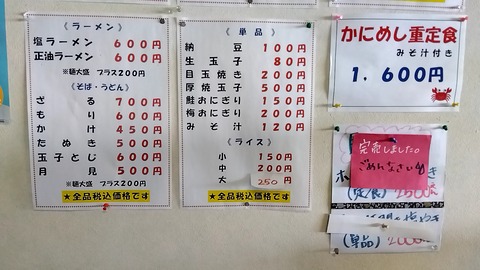 《ラーメン》
塩ラーメン 600円
正油ラーメン 600円
※麺大盛 プラス200円
《そば・うどん》
ざる 700円
もり 600円
かけ 450円
たぬき 500円
玉子とじ 600円
月見 500円
※麺大盛 プラス200円
★全品税込価格です
《単品》
納豆 100円
生玉子 80円
目玉焼き 200円
厚焼玉子 500円
鮭おにぎり 150円
梅おにぎり 200円
みそ汁 120円
《ライス》
小 150円
中 200円
大 250円
★全品税込価格です
かにめし重定食
みそ汁付き
1,600円
完売しました。
ごめんなさい
(定食)
(単品)